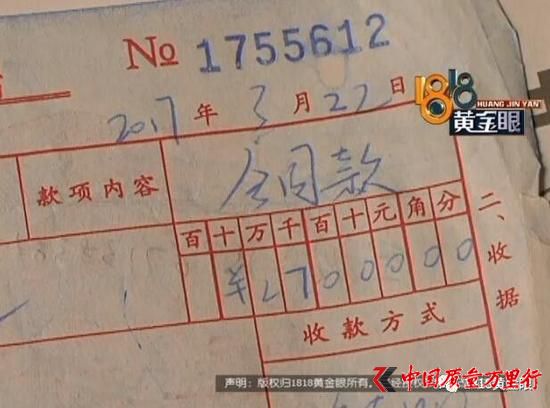 No 1755612
2017年3月22日
1818
HUANG JIN YAN
黄金眼
款项内容 合同款
百十万千百十元角分
¥2700000
二、收据
收款方式
声明：版权归1818黄金眼所有，
中国质量万里行